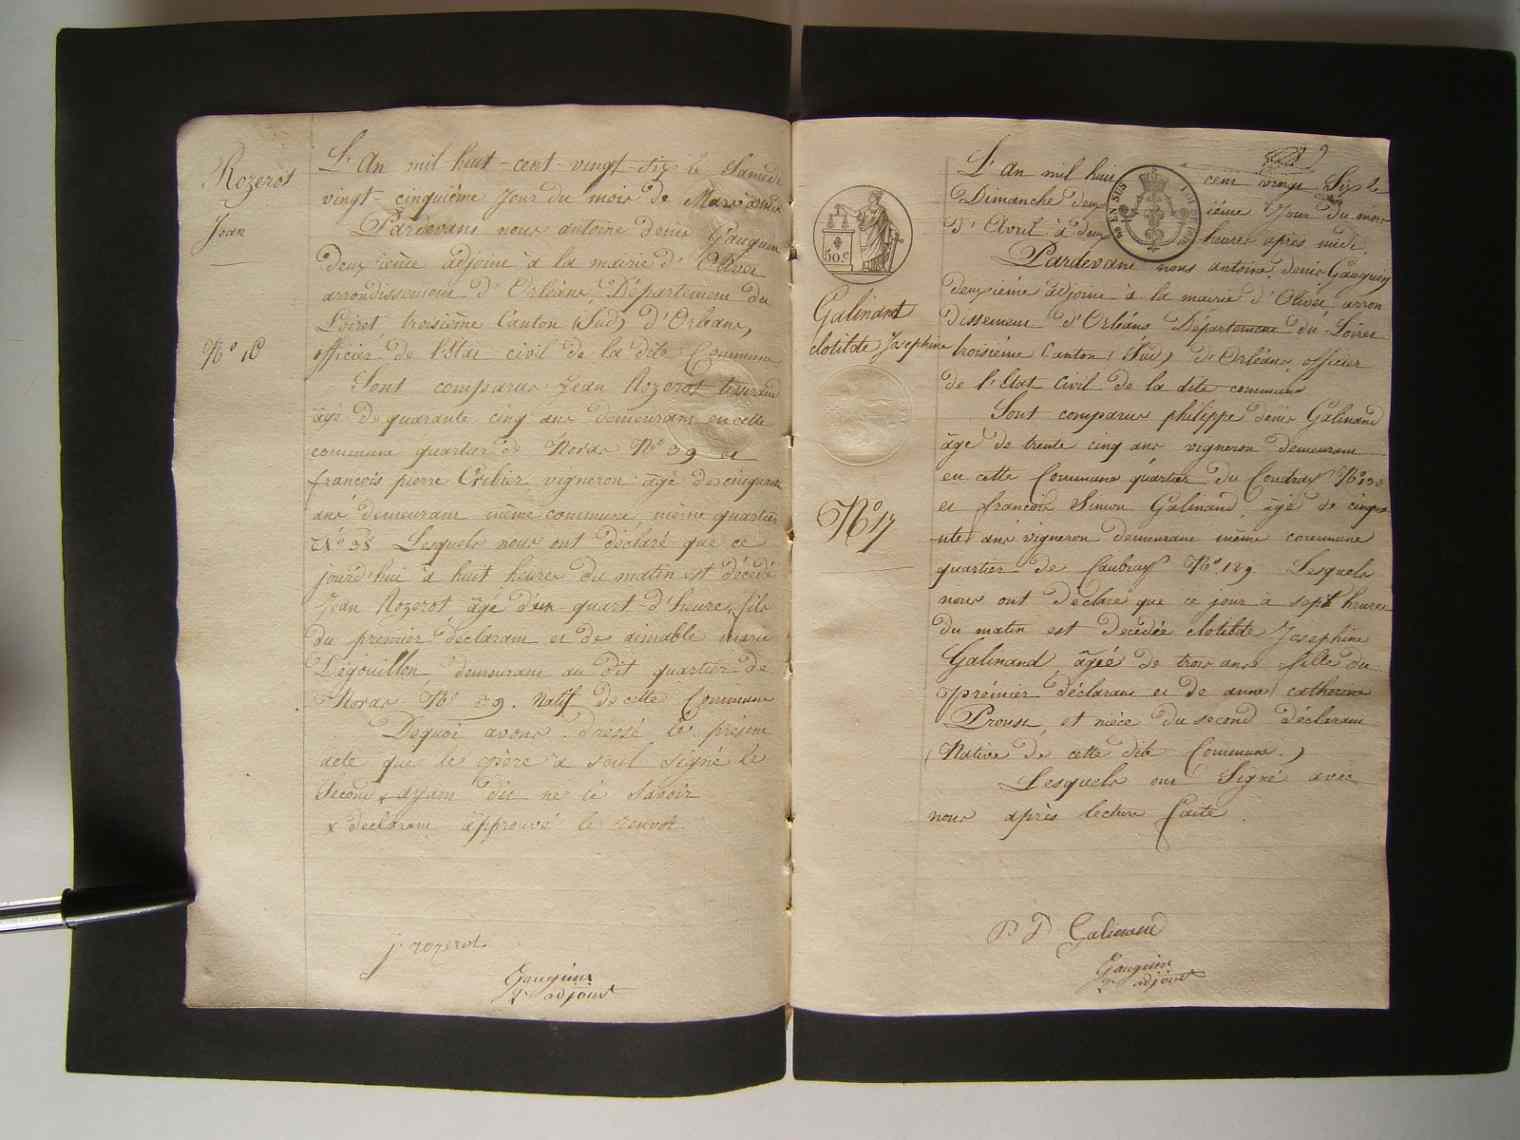 Rozerot
Jean
N.º 16
L'An mil huit-cent-vingt-six le Samedi
vingt-cinquième Jour du mois de Mars à midi
Pardevant nous antoine denis Gauguin
deuxième adjoint à la mairie d'Olivet
arrondissement d'Orléans Département du
Loiret troisième Canton (Sud) d'Orléans,
officier de l'Etat civil de la dite Commune
Sont comparus Jean Rozerot tisserand
âgé de quarante cinq ans demeurant en cette
commune quartier de Noras N.º 39 et
françois pierre vigneron âgé de cinquante
ans demeurant même commune, même quartier
N.º 38 Lesquels nous ont déclaré que ce
jourd'hui à huit heures du matin est décédé
Jean Rozerot âgé d'un quart-d'heure, fils
du premier déclarant et de aimable marie
Légouillon, demeurant au dit quartier de
Noras N.º 39. Natif de cette Commune
Dequoi avons dressé le présent
acte que le père a seul signé le
Second x ayant dit ne le Savoir
x declarant approuvé le renvoi
j. rozerot
Gauguin
2e adjoint
50.c
EN SUS
Galinand
clotilde Josephine
N.º 17
L'An mil huit cent vingt Six le
Dimanche deuxième Jour du mois
d'Avril à deux heures après midi
Pardevant nous antoine denis Gauguin
deuxième adjoint à la mairie d'Olivet arron
dissement d'Orléans Département du Loiret
troisième Canton (Sud) d'Orléans, officier
de l'Etat Civil de la dite commune
Sont comparus philippe denis Galinand
âgé de trente cinq ans vigneron demeurant
en cette Commune quartier du Coudray
et françois Simon Galinand, âgé de cinqua
nte ans vigneron demeurant même commune
quartier de Caubray N.º 129. Lesquels
nous ont déclaré que ce jour à sept heures
du matin est decédée clotilde Josephine
Galinand, âgée de trois ans, fille du
prémier déclarant et de anne catherine
Proust, et nièce du second déclarant
(Native de cette dite Commune.)
Lesquels ont Signé avec
nous après lecture faite.
P D Galinand
Gauguin
2e adjoint